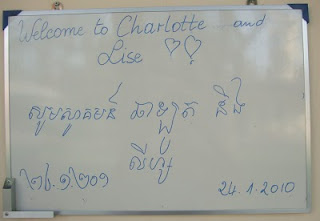 Welcome to Charlotte and
Lise ♡♡
សូមស្វាគមន៍ ឆាឡូត និង
លីហ្ស៍
24.1.2010